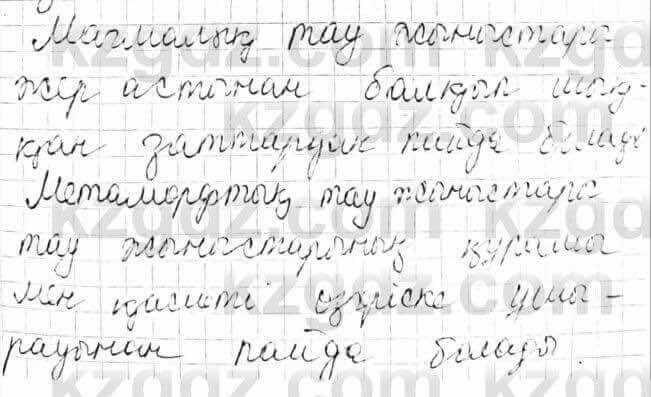 Магмалық тау жыныстары
жер астынан балқып шық-
қан заттардан пайда болады
Метаморфтық тау жыныстары
тау жыныстарының құрамы
мен қасиеті өзгеріске ұшы-
рауынан пайда болады.
kzgdz.com